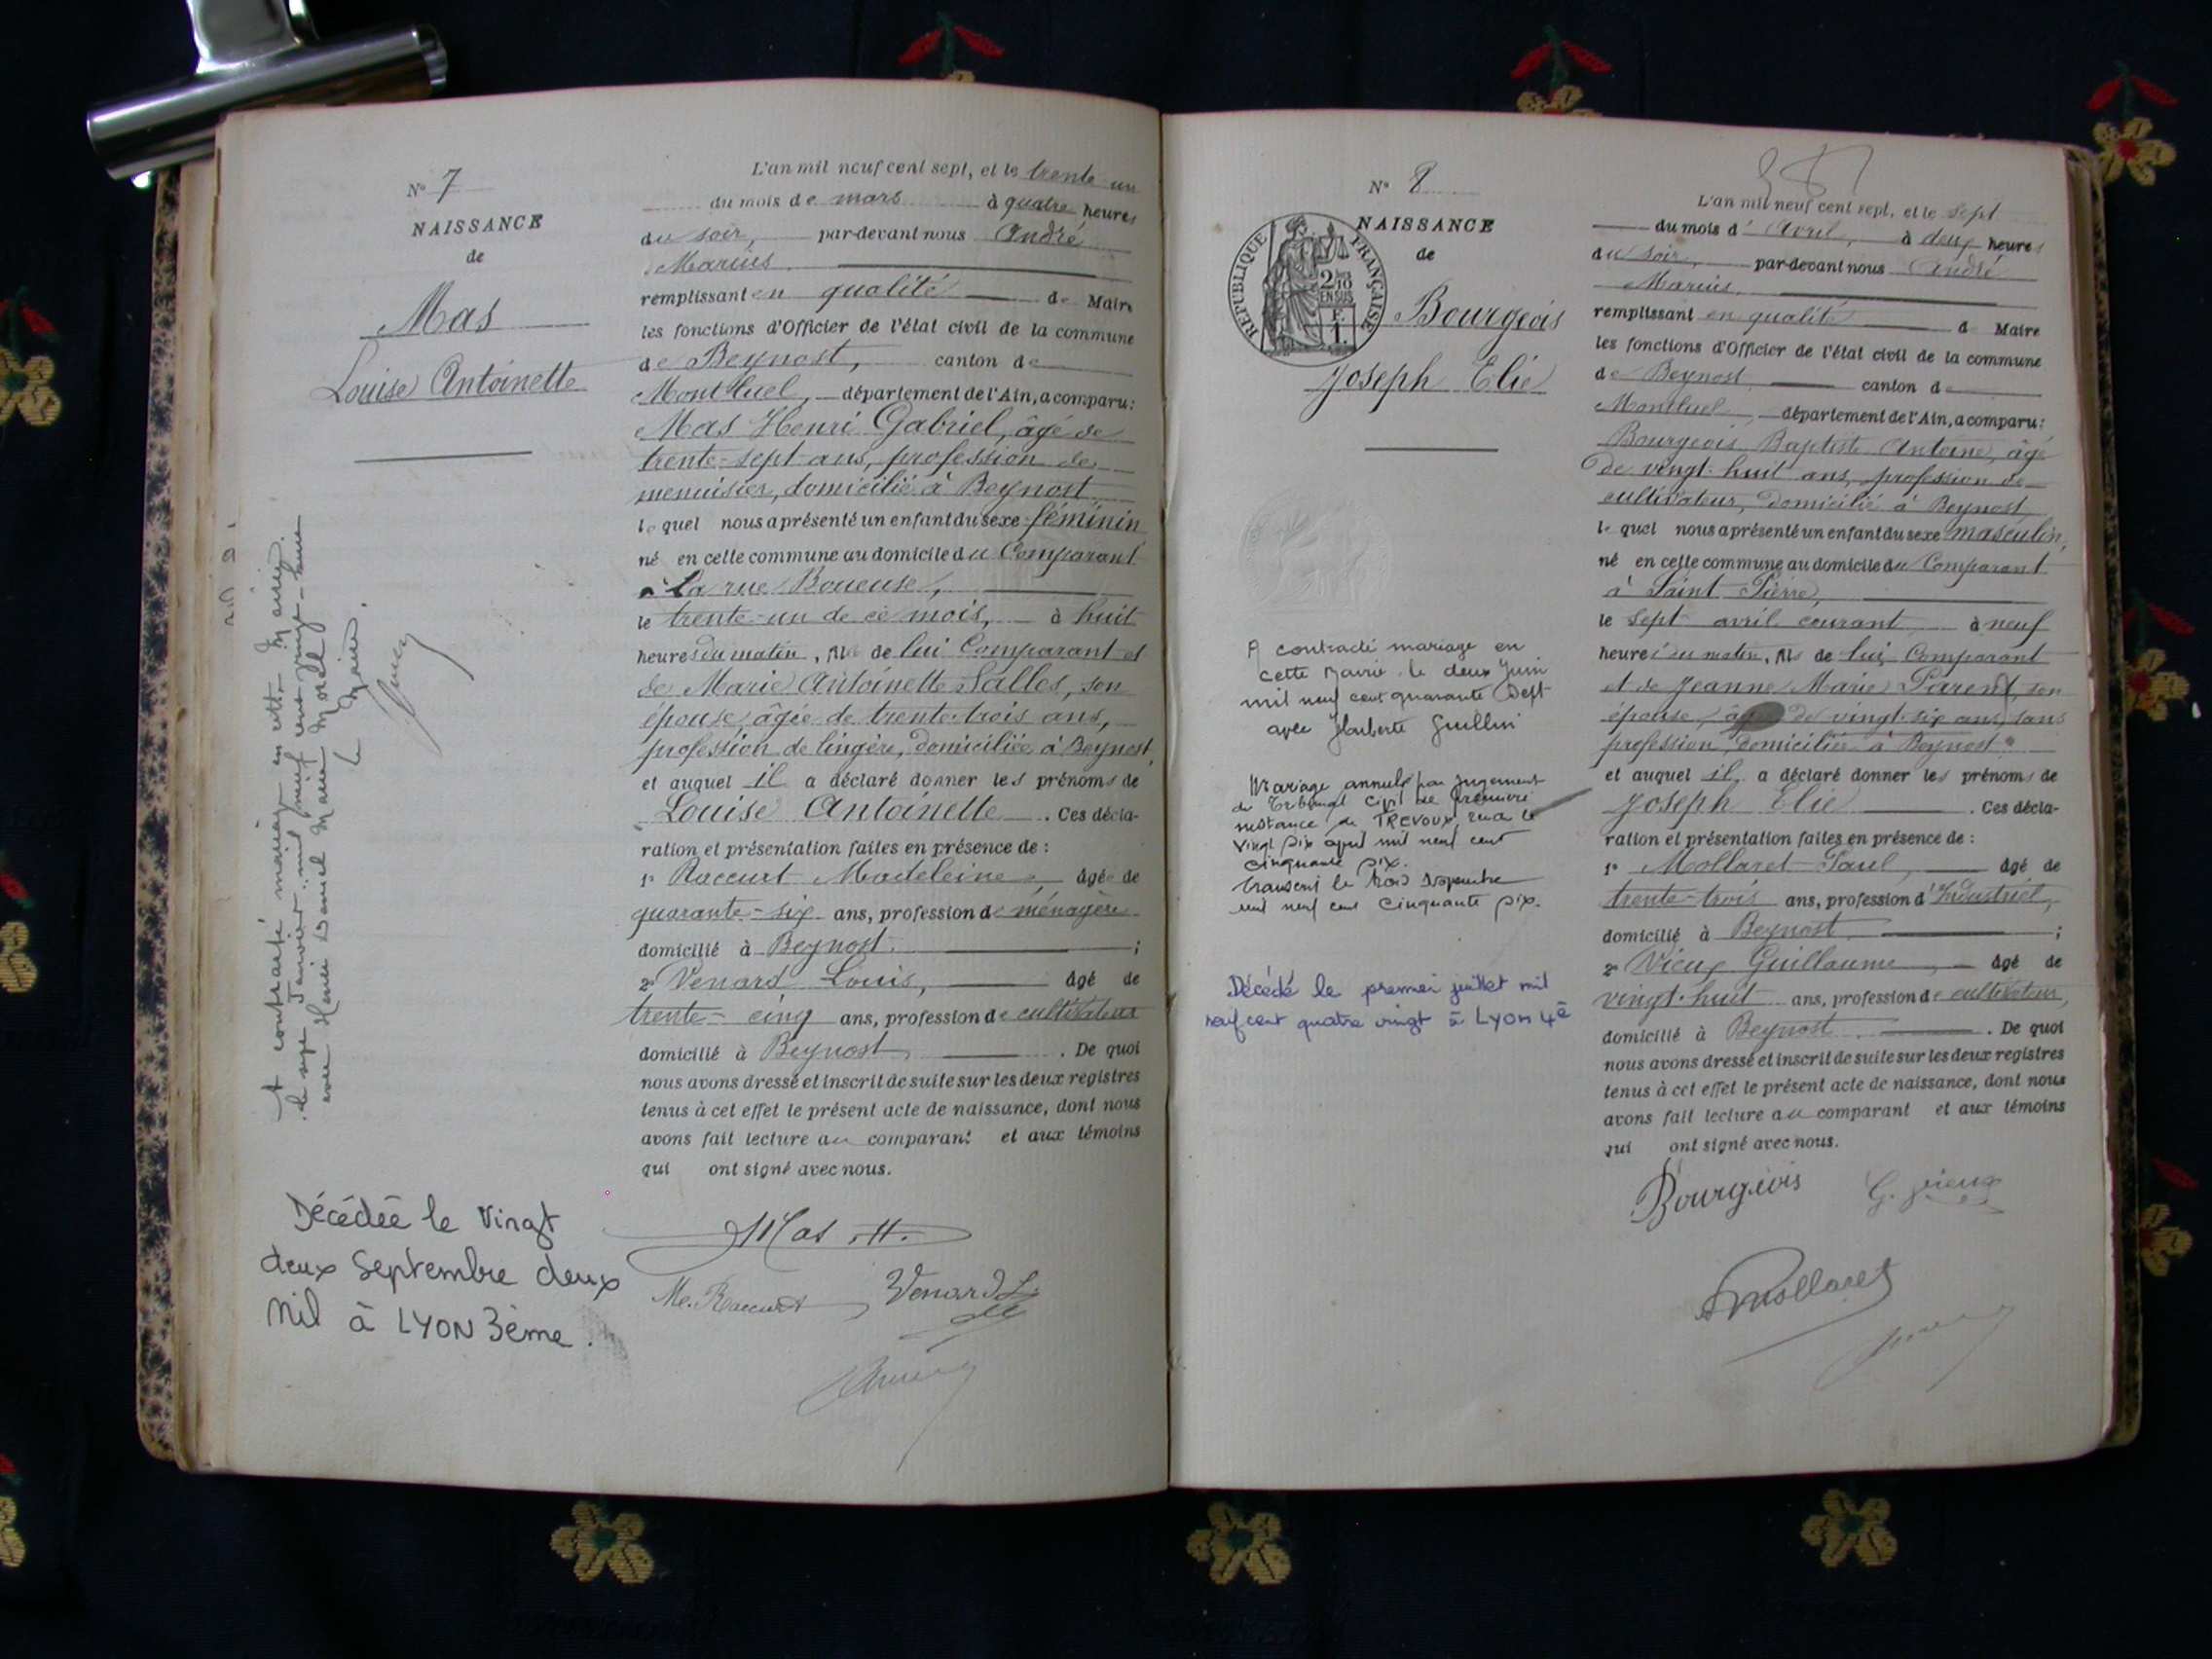 N° 7
NAISSANCE
de
Mas
Louise Antoinette
A contracté mariage en cette Mairie
le onze Janvier mil neuf cent vingt
avec Henri Daniel Morel
le Maire.
Décédée le Vingt
deux Septembre deux
Mil à LYON 3ème.
L'an mil neuf cent sept, et le trente un
du mois de mars à quatre heures
du soir, par-devant nous André
Marius
remplissant en qualité de Maire
les fonctions d'Officier de l'état civil de la commune
de Beynost, canton de
Montluel, département de l'Ain, a comparu:
Mas Henri Gabriel, âgé de
trente-sept ans, profession de
menuisier, domicilié à Beynost
lequel nous a présenté un enfant du sexe féminin
né en cette commune au domicile du Comparant
à la rue Boueuse,
le trente-un de ce mois, à huit
heures du matin, fils de lui Comparant et
de Marie Antoinette Salles, son
épouse, âgée de trente-trois ans,
profession de lingère, domiciliée à Beynost,
et auquel il a déclaré donner les prénoms de
Louise Antoinette. Ces décla-
ration et présentation faites en présence de :
1° Raccurt Madeleine, âgée de
quarante-six ans, profession de ménagère
domicilié à Beynost ;
2° Venard Louis, âgé de
trente-cinq ans, profession de cultivateur
domicilié à Beynost. De quoi
nous avons dressé et inscrit de suite sur les deux registres
tenus à cet effet le présent acte de naissance, dont nous
avons fait lecture au comparant et aux témoins
qui ont signé avec nous.
Mas H.
Me. Raccurt Venard L.
N° 8
NAISSANCE
de
REPUBLIQUE FRANÇAISE
2/10
EN SUS
F.
1.
Bourgeois
Joseph Elie
A contracté mariage en
cette Mairie le deux Juin
mil neuf cent quarante Sept
avec Huberte Guillin
Mariage annulé par jugement
du Tribunal Civil de première
instance de TREVOUX, rendu le
vingt six avril mil neuf cent
cinquante six.
Transcrit le trois novembre
mil neuf cent cinquante six.
Décédé le premier juillet mil
neuf cent quatre vingt à Lyon 4è
L'an mil neuf cent sept, et le sept
du mois d'Avril, à deux heures
du soir, par-devant nous André
Marius,
remplissant en qualité de Maire
les fonctions d'Officier de l'état civil de la commune
de Beynost canton de
Montluel, département de l'Ain, a comparu:
Bourgeois Baptiste Antoine, âgé
de vingt-huit ans, profession de
cultivateur, domicilié à Beynost
lequel nous a présenté un enfant du sexe masculin,
né en cette commune au domicile du Comparant
à Saint Pierre,
le sept avril courant à neuf
heures du matin, fils de lui Comparant
et de Jeanne Marie Parent, son
épouse, âgée de vingt-six ans, sans
profession, domiciliée à Beynost
et auquel il a déclaré donner les prénoms de
Joseph Elie. Ces décla-
ration et présentation faites en présence de :
1° Mollaret Paul, âgé de
trente-trois ans, profession d'Industriel,
domicilié à Beynost ;
2° Vieux Guillaume, âgé de
vingt-huit ans, profession de cultivateur,
domicilié à Beynost. De quoi
nous avons dressé et inscrit de suite sur les deux registres
tenus à cet effet le présent acte de naissance, dont nous
avons fait lecture au comparant et aux témoins
qui ont signé avec nous.
Bourgeois G. Vieux
Mollaret